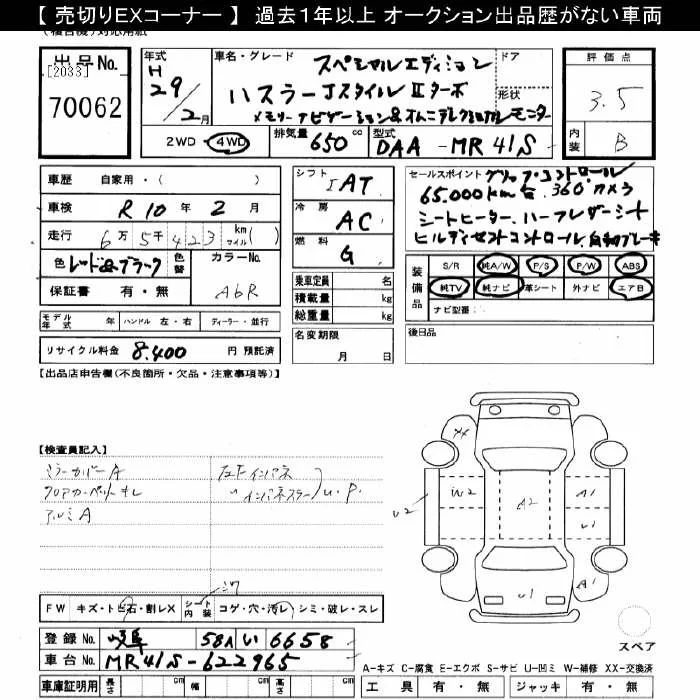 【 売切りEXコーナー 】 過去１年以上 オークション出品歴がない車両
出品No. [2033] 70062
年式 H 29/2月
車名・グレード スペシャルエディション
ハスラー JスタイルⅡターボ
メモリーナビゲーション&オムニディレクショナルモニター
ドア
形状
評価点 3.5
内装 B
2WD ・ 4WD 排気量 650 cc 型式 DAA - MR41S
車歴 自家用・( )
車検 R10年 2月
走行 6万5千423 km マイル( )
色 レッド&ブラック 色替 カラーNo. A6R
保証書 有・無
シフト IAT
冷房 AC
燃料 G
乗車定員 名
積載量 kg
総重量 kg
名変期限 月 日
セールスポイント グリップコントロール
65.000km台. 360°カメラ
シートヒーター. ハーフレザーシート
ヒルディセントコントロール. 自動ブレーキ
装備品 S/R 純A/W P/S P/W ABS
純TV 純ナビ 革シート 外ナビ エアB
ナビ型番:
後日品
モデル年式 年 ハンドル 左・右 ディーラー・並行
リサイクル料金 8.400 円 預託済
【出品店申告欄(不良箇所・欠品・注意事項等)】
【検査員記入】
ミラーカバーA
フロアカーペットキレ
アルミA
左F インパネ
〃 インパネスラー
U.P.
XX
U2
W2
A2
A1
U1
A1
U1
FW キズ・トビ石・割レX シート内装 コゲ・穴・汚レ・シミ・破レ・スレ
登録No. 岐阜 58A い 6658
車台No. MR41S-622965
車庫証明用 長さ cm 幅 cm 高さ cm
スペア
A-キズ C-腐食 E-エクボ S-サビ U-凹ミ W-補修 XX-交換済
工具 有・無 ジャッキ 有・無